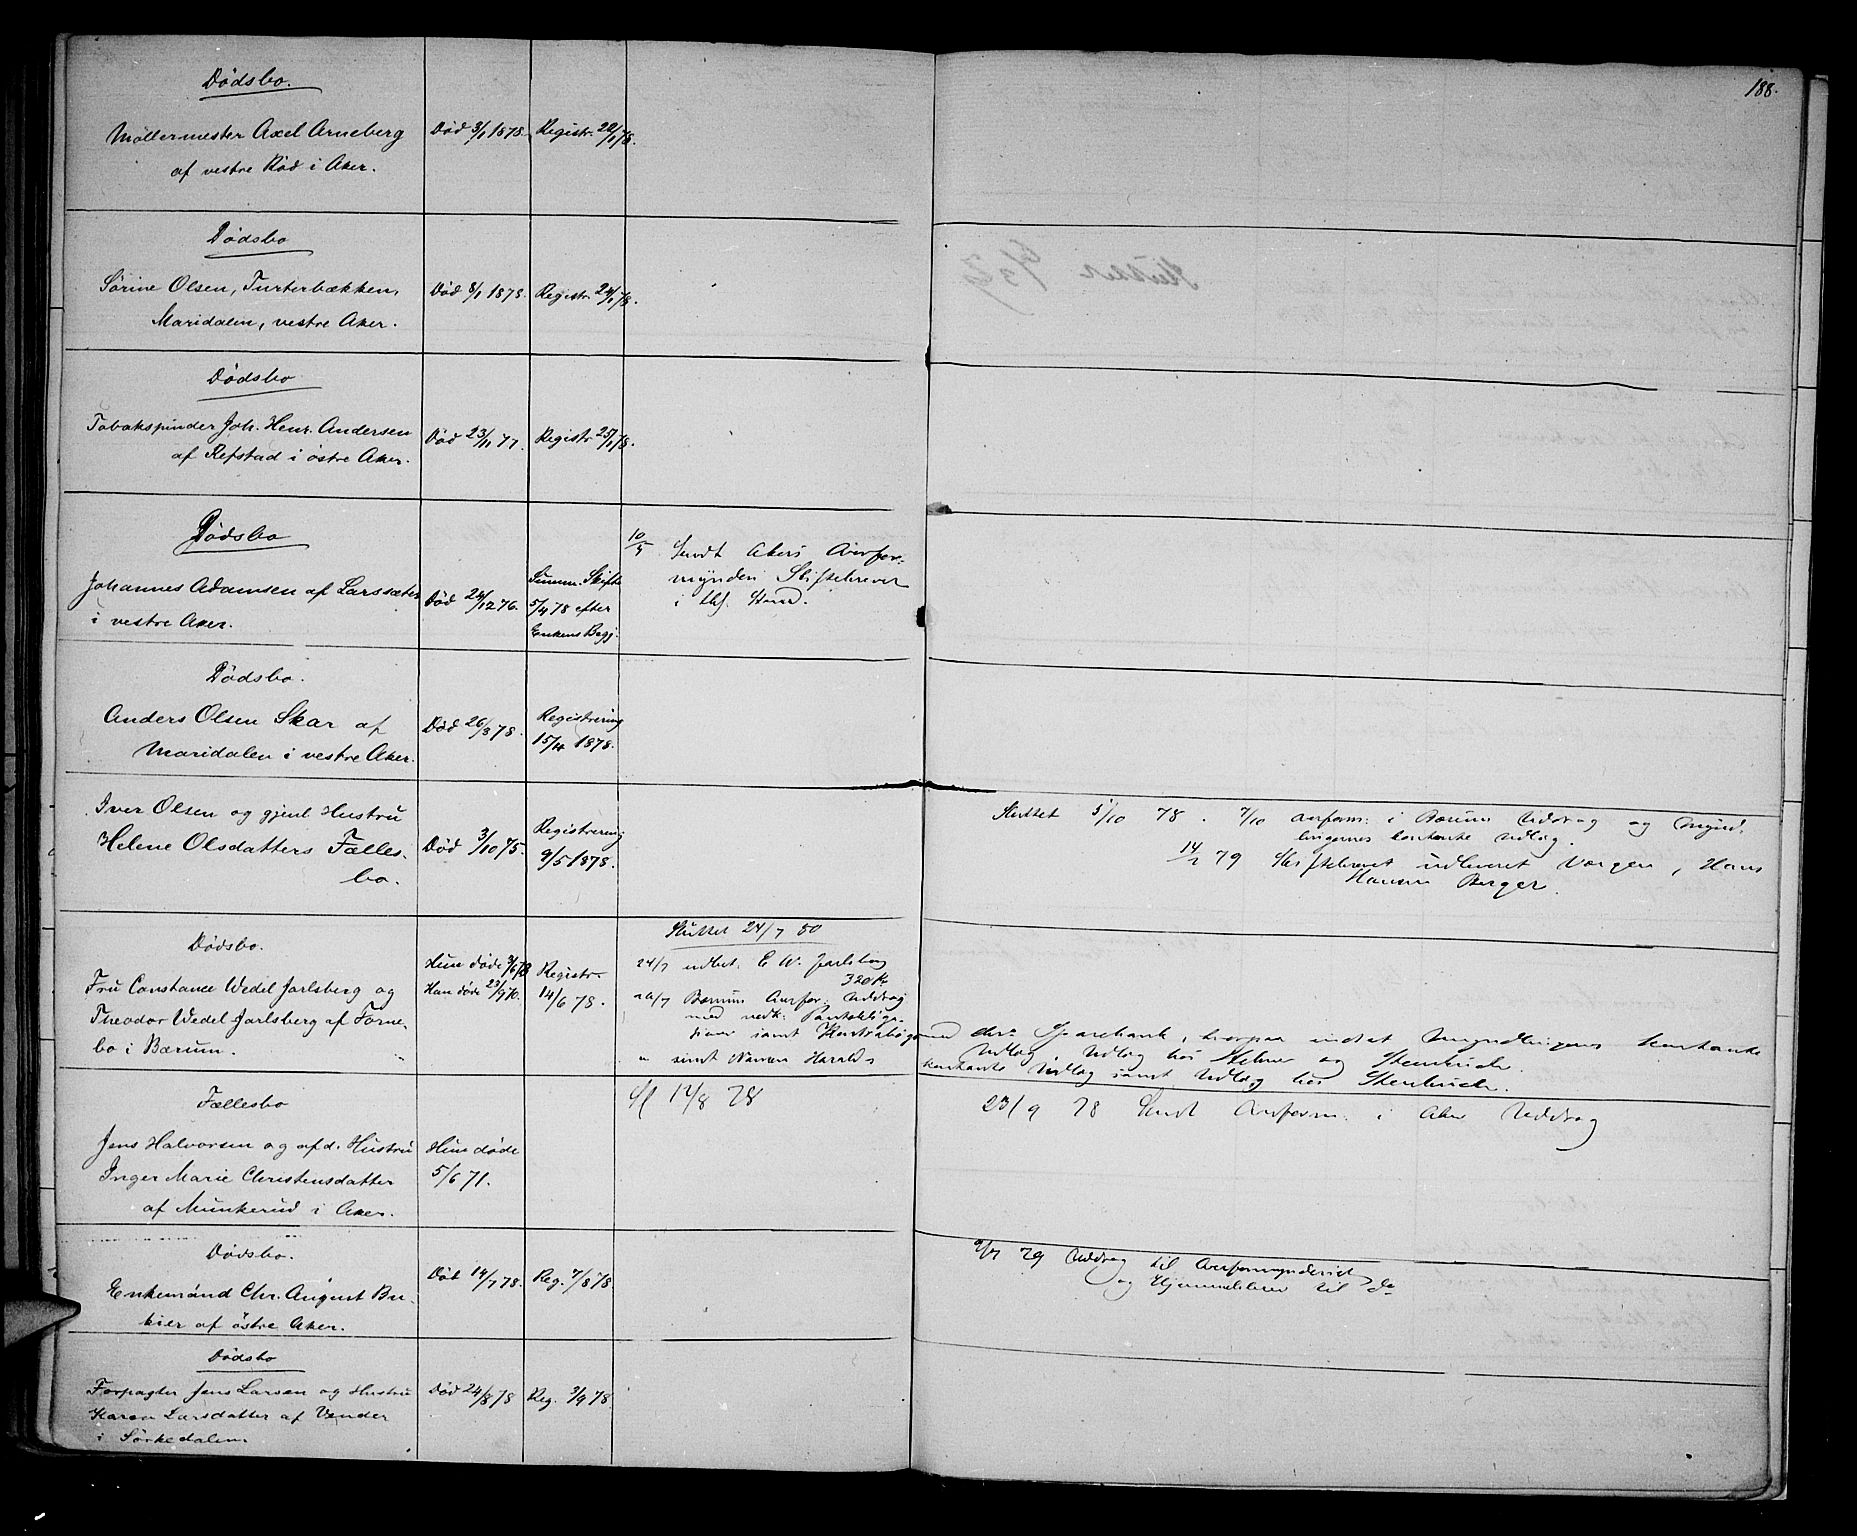 188.
Dödsbo.
Möllermester Axel Arneberg
af vestre Röd i Aker.
Död 3/1 1878.
Registr. 22/1 78.
Dödsbo
Sörine Olsen, Turterbækken,
Maridalen, vestre Aker.
Död 8/1 1878.
Registr. 24/1 78.
Dödsbo
Tobakspinder Joh. Henr. Andersen
af Refstad i östre Aker.
Död 23/11 77.
Registr 25/1 78.
Dödsbo
Johannes Adamsen af Larssæter
i vestre Aker.
Död 24/12 76.
Summ. Skifte
5/4 78 efter
Enkens Begj.
10/5 Sendt Akers Overfor-
mynderi Skiftebrever
i
Dödsbo.
Anders Olsen Skar af
Maridalen i vestre Aker.
Död 26/3 78.
Registrering
15/4 1878.
Iver Olsen og gjenl Hustru
Helene Olsdatters Fælles-
bo.
Död 3/10 75.
Registrering
9/5 1878.
Sluttet 5/10 78. 7/10 overform: i Bærum Uddrag og Mynd-
lingernes kontante Udlæg.
14/2 79 Skiftebrevet udleveret Værgen, Hans
Hansen Berger.
Dödsbo.
Fru Constance Wedel Jarlsberg og
Theodor Wedel-Jarlsberg af Forne-
bo i Bærum.
Hun döde 3/6 78
Han döde 23/9 70.
Registr-
14/6 78.
Sluttet 24/7 80
24/7 udbet. C W. Jarlsberg
320 Kr
Bærum Overfor: Uddrag
med vedk: Panteobliga-
tioner samt Kontrabog med Sparebank, hvorpaa indsat Myndlingernes kontante
Udlæg Udlæg hos og Stenbruch.
samt Navnen Haralds kontante Udlæg samt Udlæg hos Stenbruch.
Fællesbo
Jens Halvorsen og afd. Hustru
Inger Marie Christensdatter
af Munkerud i Aker.
Hun döde
5/6 71.
Sl 14/8 78
23/9 78 Sendt Overform. i Aker Uddrag
Dödsbo.
Enkemand Chr. August Bu-
kier af östre Aker.
Död 14/7 78.
Reg. 7/8 78
9/7 79 Uddrag til Overformynderiet
og Hjemmelsbrev til do
Dödsbo
Forpagter Jens Larsen og Hustru
Karen Larsdatter af Vender
i Sörkedalen.
Död 24/8 78
Reg. 3/9 78